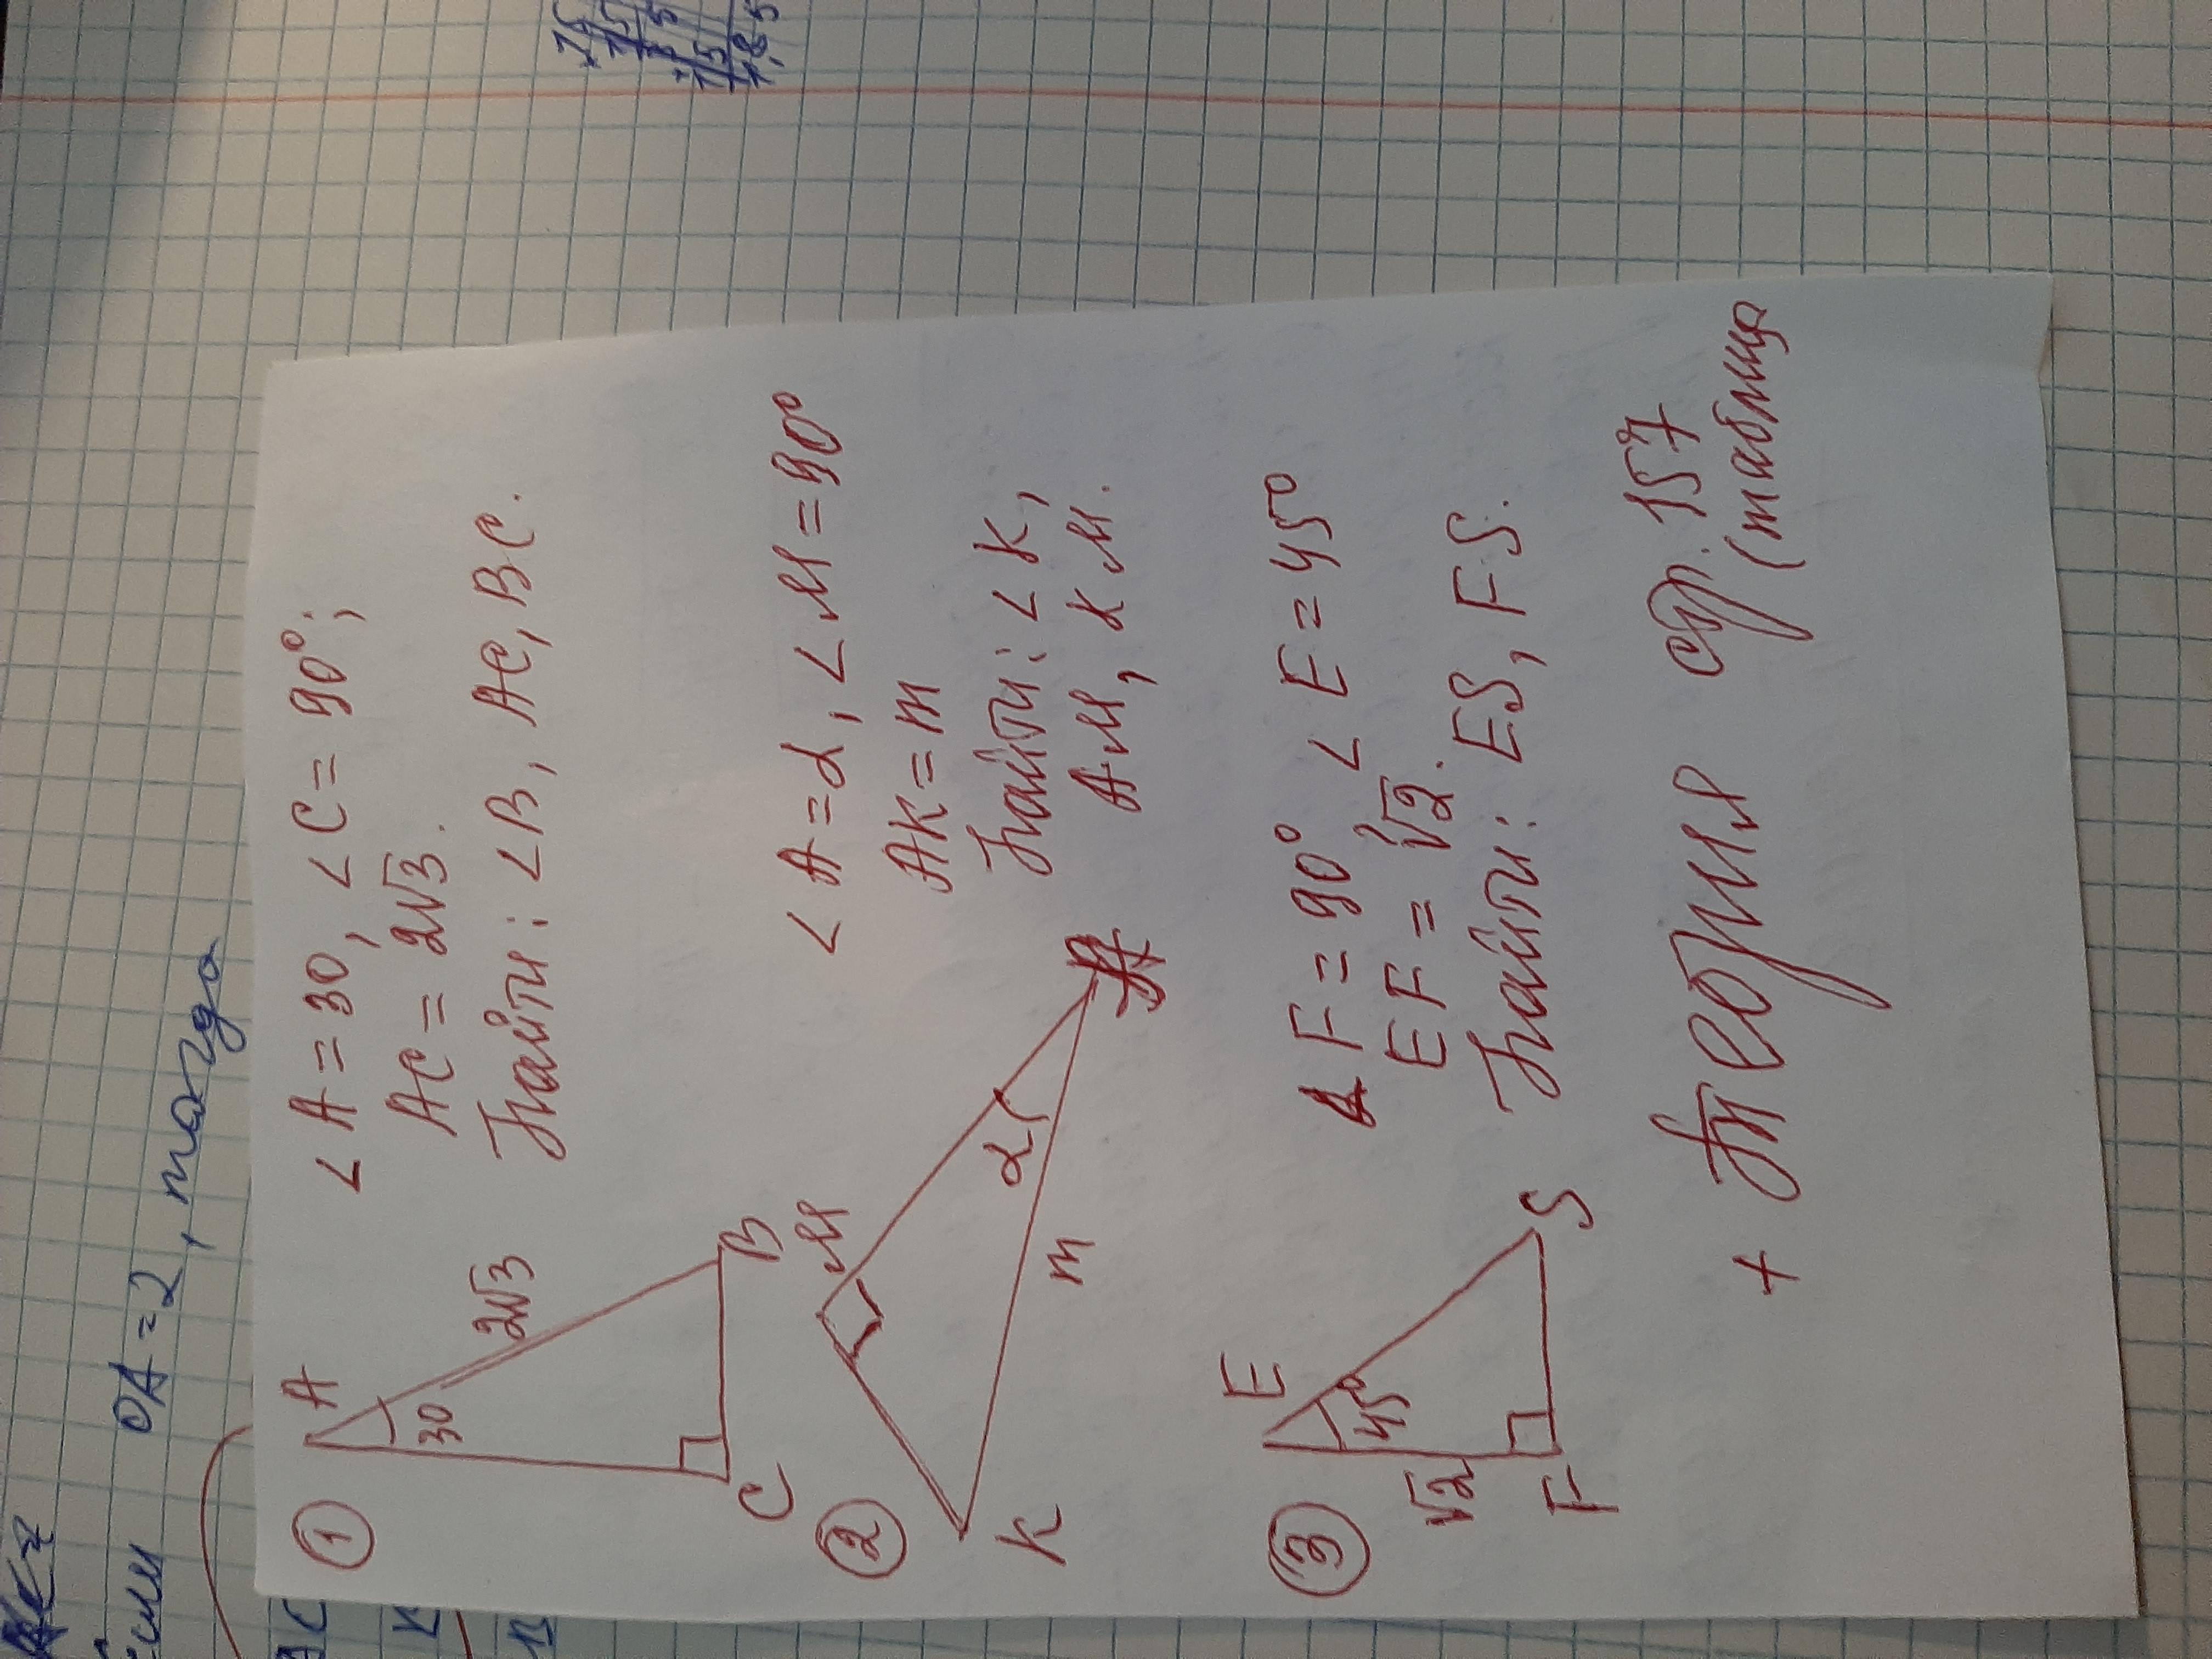 OA = 2, тогда
①
A
30
2√3
C
B
∠A = 30, ∠C = 90°;
AC = 2√3.
Найти: ∠B, AC, BC.
②
M
K
α
m
A
∠A = α, ∠M = 90°
AK = m
Найти: ∠K,
AM, KM.
③
E
45°
√2
F
S
∠F = 90° ∠E = 45°
EF = √2.
Найти: ES, FS.
+ Теория стр. 157
(таблица